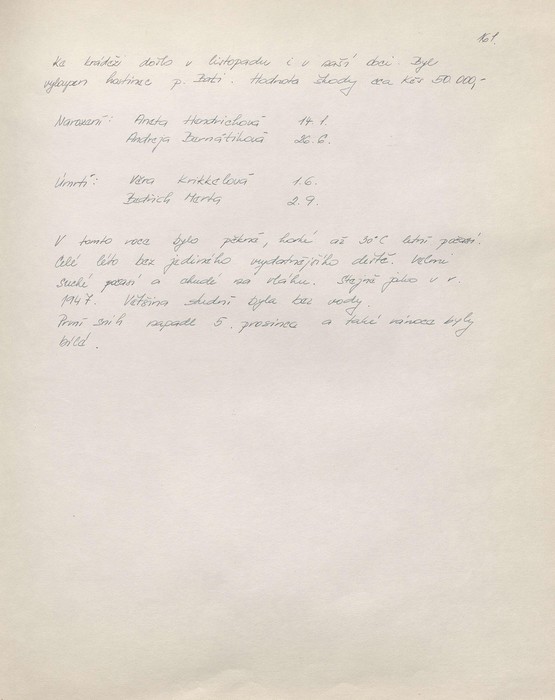 161.
Ke krádeži došlo v listopadu i v naší obci. Byl
vyloupen hostinec p. Bati. Hodnota škody cca Kčs 50.000,-
Narození: Aneta Hendrichová 14.1.
Andreja Bernátíková 26.6.
Úmrtí: Věra Krikkelová 1.6.
Bedřich Marta 2.9.
V tomto roce bylo pěkné, horké až 30°C letní počasí.
Celé léto bez jediného vydatnějšího deště. Velmi
suché počasí a chudé na vláhu. Stejně jako v r.
1947. Většina studní byla bez vody.
První sníh napadl 5. prosince a také vánoce byly
bílé.